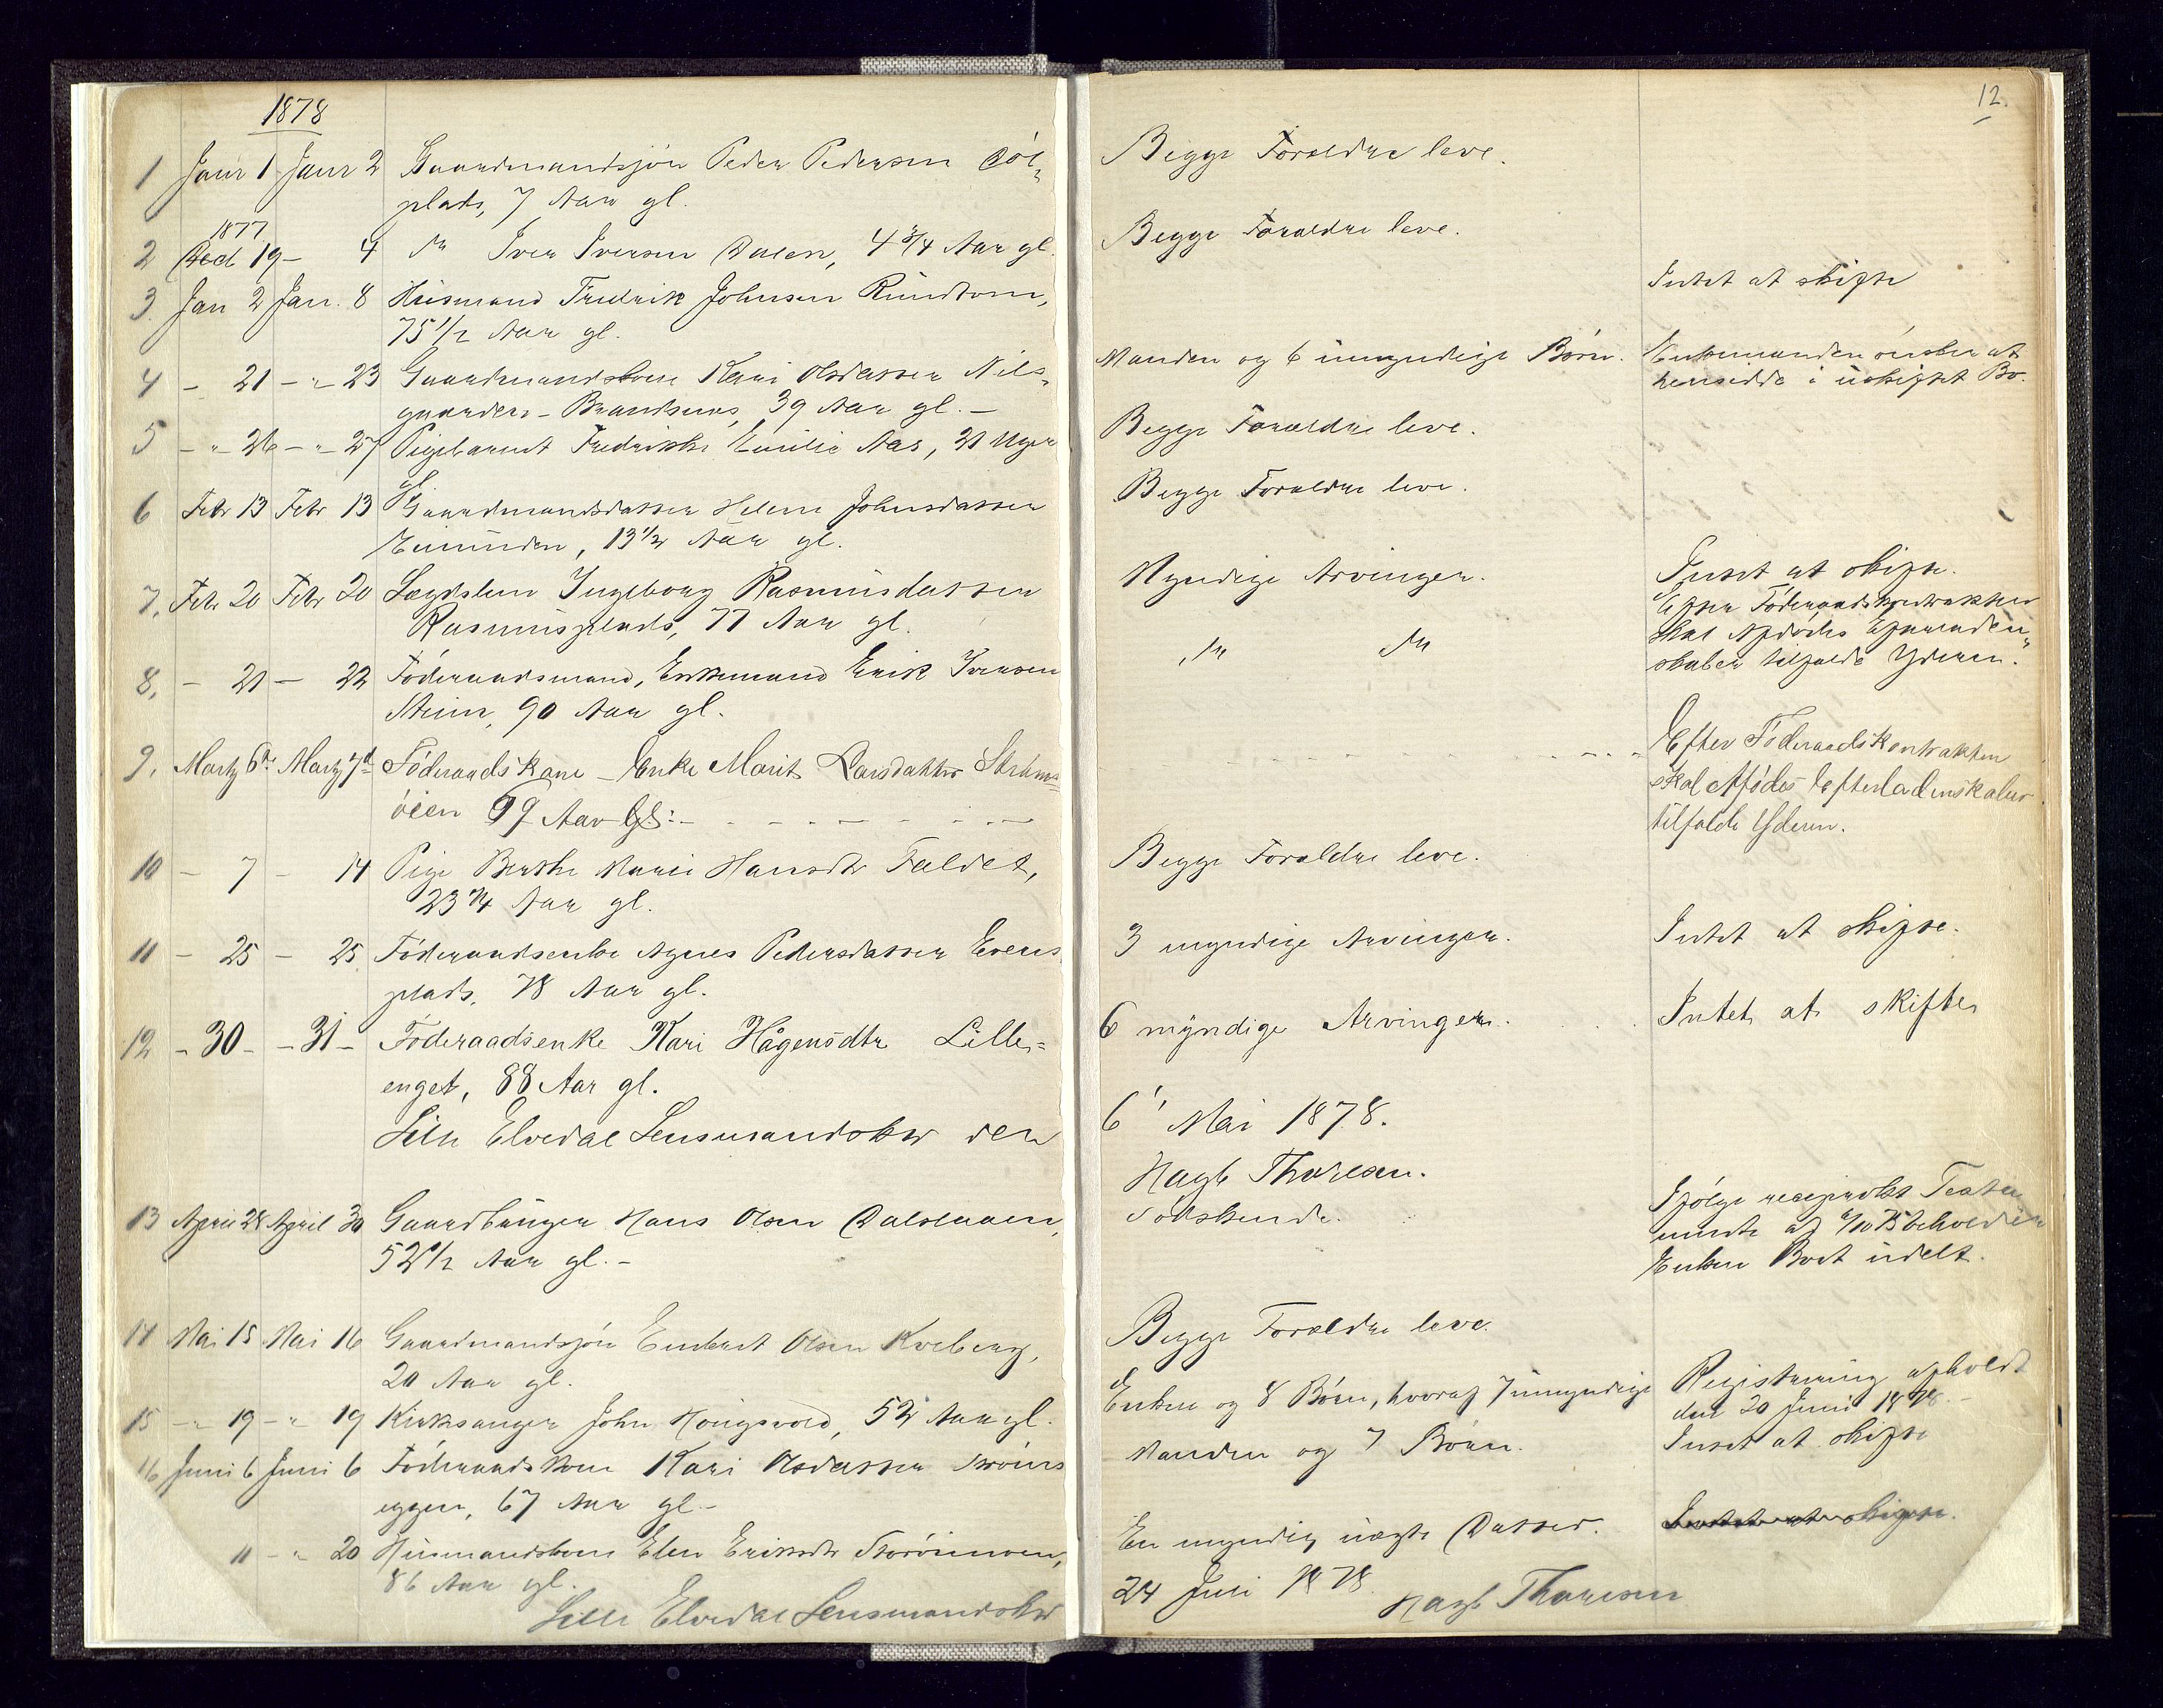 1878
1 Janr 1 Janr 2 Gaardmandssøn Peder Pedersen
plads, 7 Aar gl.
1877
2 Decb 19 - 4 do Iver Iversen Dalen, 4 3/4 Aar gl.
3. Jan 2 Jan. 8 Husmand Fredrik Johnsen Rundtom,
75 1/2 Aar gl.
4 - 21 - " 23 Gaardmandskone Kari Olsdatter Nils-
gaarden - Brandsnes, 39 Aar gl. -
5 - " 26 - " 27 Pigebarnet Fredrikke Emilie Aas, 21 Uger
gl.
6 Febr 13 Febr 13 Gaardmandsdatter Helene Johnsdatter
13 1/2 Aar gl.
7. Febr 20 Febr 20 Lægdslem Ingeborg Rasmusdatter
Rasmusplads, 77 Aar gl.
8. - 21 - 22 Föderaadsmand, Enkemand Erik Iversen
Steien, 90 Aar gl.
9. Martz 6te Martz 7de Föderaadskone - Enke Marit Larsdatter Ströms=
öien 69 Aar Gl: -
10 - 7 - 14 Pige Berthe Marie Hansdtr Faldet,
23 1/4 Aar gl.
11 - 25 - 25 Föderaadsenke Agnes Pedersdatter Evens
plads, 78 Aar gl.
12 - 30 - - 31 - Föderaadsenke Kari Hågensdtr Lille=
enget, 88 Aar gl.
Lille Elvedal Lensmandsktr den
13 April 28 April 30 Gaardbruger Hans Olsen Dalslaaen,
52 1/2 Aar gl. -
14 Mai 15 Mai 16 Gaardmandssøn Embret Olsen Kveberg,
20 Aar gl.
15 - " 19 - " 19 Kirksanger John Hougsvold, 52 Aar gl.
16 Juni 6 Juni 6 Föderaadskone Kari Olsdatter
eggen, 67 Aar gl -
11 - " 20 Husmandskone Elen Eriksdtr Storöimoen,
86 Aar gl.
Lille Elvedal Lensmandsktr
12.
Begge Forældre leve.
Begge Forældre leve.
Intet at skifte
Manden og 6 umyndige Börn. Enkemanden önsker at
hensidde i uskiftet Bo.
Begge Forældre leve.
Begge Forældre leve.
Myndige Arvinger. Intet at skifte.
Efter Föderaadskontrakten
do do skal Afdödes Efterladen-
skaber tilfalde Yderen.
Efter Föderaadskontrakten
skal Afdödes Efterladenskaber
tilfalde Yderen.
Begge Forældre leve.
3 myndige Arvinger. Intet at skifte.
6 myndige Arvinger. Intet at skifte
6' Mai 1878.
Hagb Thoresen.
Södskende. Ifölge reciprokt Testa
mente af 6/10 75 beholder
Enken Boet udelt.
Begge Forældre leve.
Enken og 8 Börn, hvoraf 7 umyndige Registrering afholdt
den 20 Juni 1878. -
Manden og 7 Börn. Intet at skifte
En myndig uægte Datter. Intet at skifte.
24 Juli 1878. Hagb Thoresen